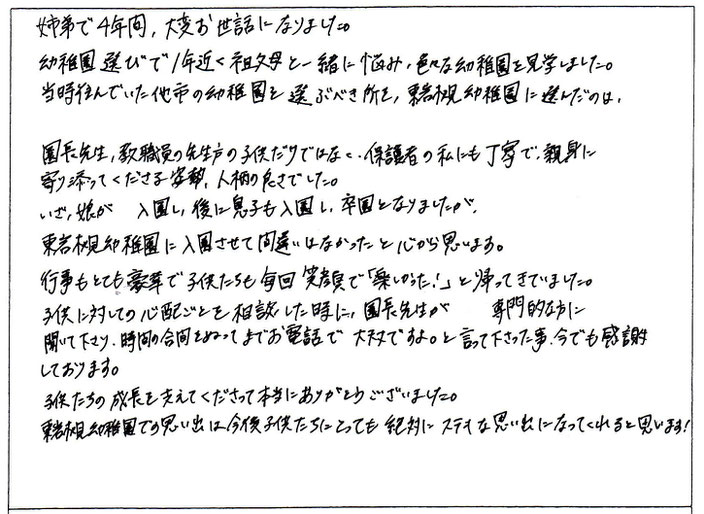 姉弟で4年間,大変お世話になりました。
幼稚園選びで1年近く祖父母と一緒に悩み,色々な幼稚園を見学しました。
当時住んでいた他市の幼稚園を選ぶべき所を,東岩槻幼稚園に選んだのは,
園長先生,教職員の先生方の子供だけではなく,保護者の私にも丁寧で,親身に
寄り添ってくださる姿勢,人柄の良さでした。
いざ,娘が 入園し,後に息子も入園し,卒園となりましたが,
東岩槻幼稚園に入園させて間違いはなかったと心から思います。
行事もとても豪華で子供たちも毎回笑顔で「楽しかった!」と帰ってきていました。
子供に対しての心配ごとを相談した時に,園長先生が 専門的な方に
聞いて下さり,時間の合間をぬってまでお電話で 大丈夫ですよ。と言って下さった事,今でも感謝
しております。
子供たちの成長を支えてくださって本当にありがとうございました。
東岩槻幼稚園での思い出は今後子供たちにとっても絶対に ステイな思い出になってくれると思います!